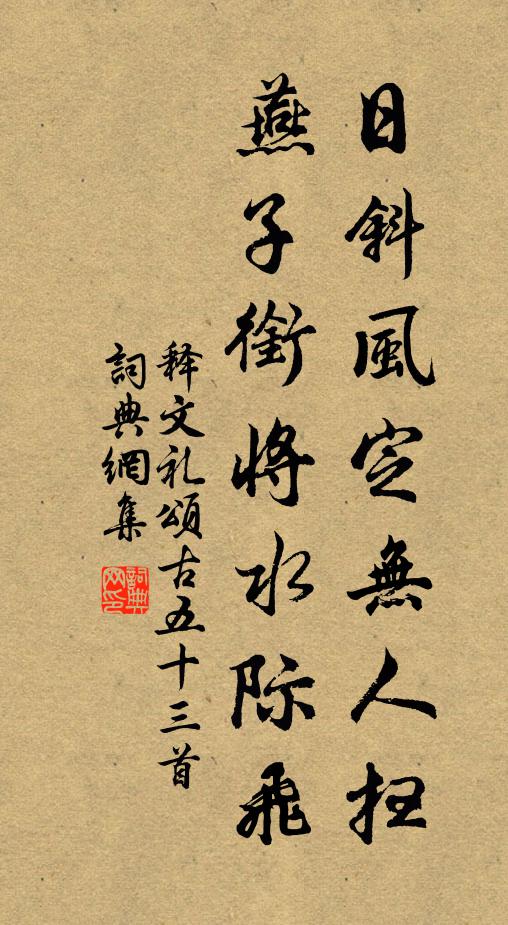 日斜風定無人扫
燕子銜將水际飛
释文礼頌古五十三首
詞典網集
詞典网印